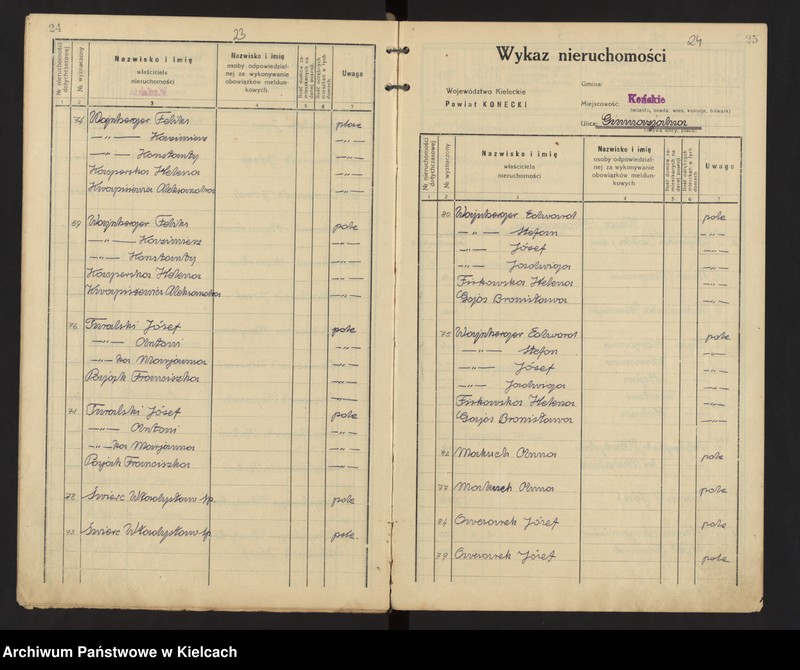 24
23
№ nieruchomości dotychczasowej
№ wyznaczony
Nazwisko i imię
właściciela
nieruchomości
Nazwisko i imię
osoby odpowiedzial-
nej za wykonywanie
obowiązków meldun-
kowych.
Uwaga
1 2 3 4 5 6 7
74 Wajnberger Feliks pole
—„— Kazimierz —„—
—„— Konstanty —„—
Kasperska Helena —„—
Kwapisiewicz Aleksandra —„—
69 Wajnberger Feliks pole
—„— Kazimierz —„—
—„— Konstanty —„—
Kasperska Helena —„—
Kwapisiewicz Aleksandra —„—
76 Józef pole
—„— Antoni —„—
—„—ka Marjanna —„—
Franciszka —„—
71 Józef pole
—„— Antoni —„—
—„—ka Marjanna —„—
Franciszka —„—
72 Świerc Władysław sp. pole
73 Świerc Władysław sp. pole
24
25
Wykaz nieruchomości
Województwo Kieleckie
Powiat KONECKI
Gmina:
Miejscowość: Końskie
Ulica: Gimnazjalna
№ nieruchomości dotychczasowej
№ wyznaczony
Nazwisko i imię
właściciela
nieruchomości
Nazwisko i imię
osoby odpowiedzial-
nej za wykonywanie
obowiązków meldun-
kowych
Uwaga
1 2 3 4 5 6 7
80 Wajnberger Edward pole
—„— Stefan —„—
—„— Józef —„—
—„— Jadwiga —„—
Firkowska Helena —„—
Gajos Bronisława —„—
75 Wajnberger Edward pole
—„— Stefan —„—
—„— Józef —„—
—„— Jadwiga —„—
Firkowska Helena —„—
Gajos Bronisława —„—
82 Makuch Anna pole
77 Makuch Anna pole
84 Józef pole
79 Józef pole
Archiwum Państwowe w Kielcach